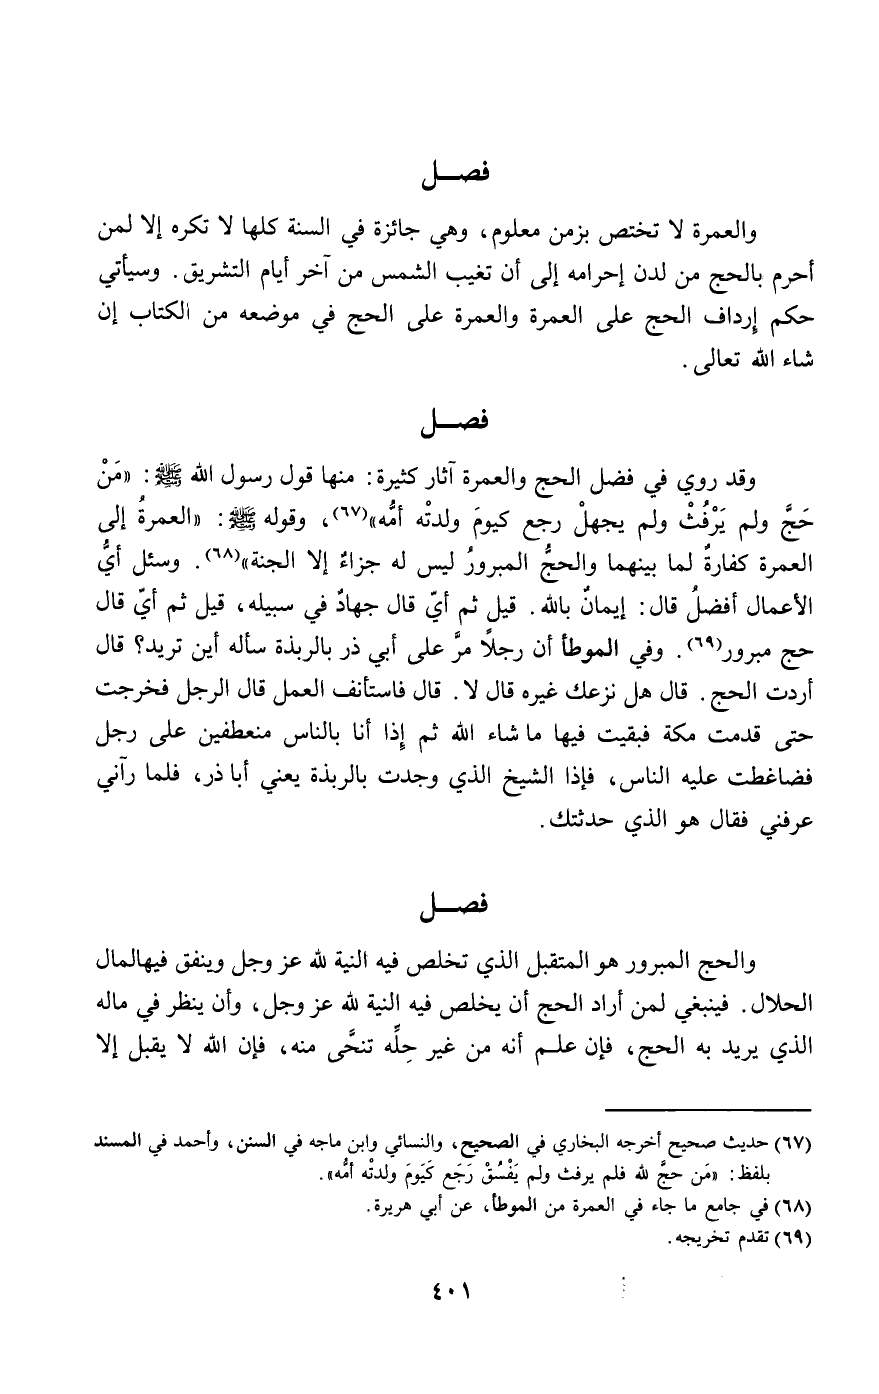 فصــل
والعمرة لا تختص بزمن معلوم، وهي جائزة في السنة كلها لا تكره إلا لمن
أحرم بالحج من لدن إحرامه إلى أن تغيب الشمس من آخر أيام التشريق. وسيأتي
حكم إرداف الحج على العمرة والعمرة على الحج في موضعه من الكتاب إن
شاء الله تعالى.
فصــل
وقد روي في فضل الحج والعمرة آثار كثيرة: منها قول رسول الله ﷺ: «مَنْ
حَجَّ ولم يَرْفُثْ ولم يجهلْ رجع كيومَ ولدتْه أمُّه»(٦٧)، وقوله ﷺ: «العمرةُ إلى
العمرة كفارةٌ لما بينهما والحجُّ المبرورُ ليس له جزاءٌ إلا الجنة»(٦٨). وسئل أيُّ
الأعمال أفضلُ قال: إيمانٌ بالله. قيل ثم أيّ قال جهادٌ في سبيله، قيل ثم أيّ قال
حج مبرور(٦٩). وفي الموطأ أن رجلاً مرَّ على أبي ذر بالربذة سأله أين تريد؟ قال
أردت الحج. قال هل نزعك غيره قال لا. قال فاستأنف العمل قال الرجل فخرجت
حتى قدمت مكة فبقيت فيها ما شاء الله ثم إذا أنا بالناس منعطفين على رجل
فضاغطت عليه الناس، فإذا الشيخ الذي وجدت بالربذة يعني أبا ذر، فلما رآني
عرفني فقال هو الذي حدثتك.
فصــل
والحج المبرور هو المتقبل الذي تخلص فيه النية لله عز وجل وينفق فيهالمال
الحلال. فينبغي لمن أراد الحج أن يخلص فيه النية لله عز وجل، وأن ينظر في ماله
الذي يريد به الحج، فإن علم أنه من غير حِلِّه تنحَّى منه، فإن الله لا يقبل إلا
(٦٧) حديث صحيح أخرجه البخاري في الصحيح، والنسائي وابن ماجه في السنن، وأحمد في المسند
بلفظ: «مَن حجَّ لله فلم يرفث ولم يَفْسُقْ رَجَع كَيَومَ ولدتْه أمُّه».
(٦٨) في جامع ما جاء في العمرة من الموطأ، عن أبي هريرة.
(٦٩) تقدم تخريجه.
٤٠١